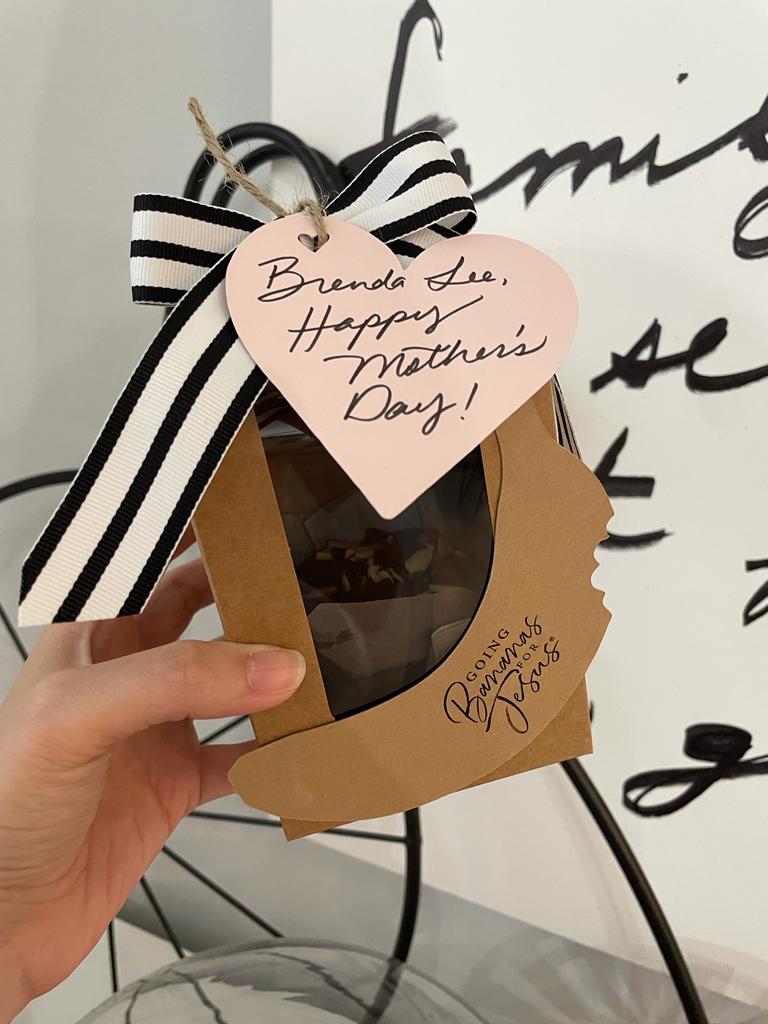 Brenda Lee,
Happy
Mother's
Day!
GOING
Bananas
FOR
Jesus®
family
se